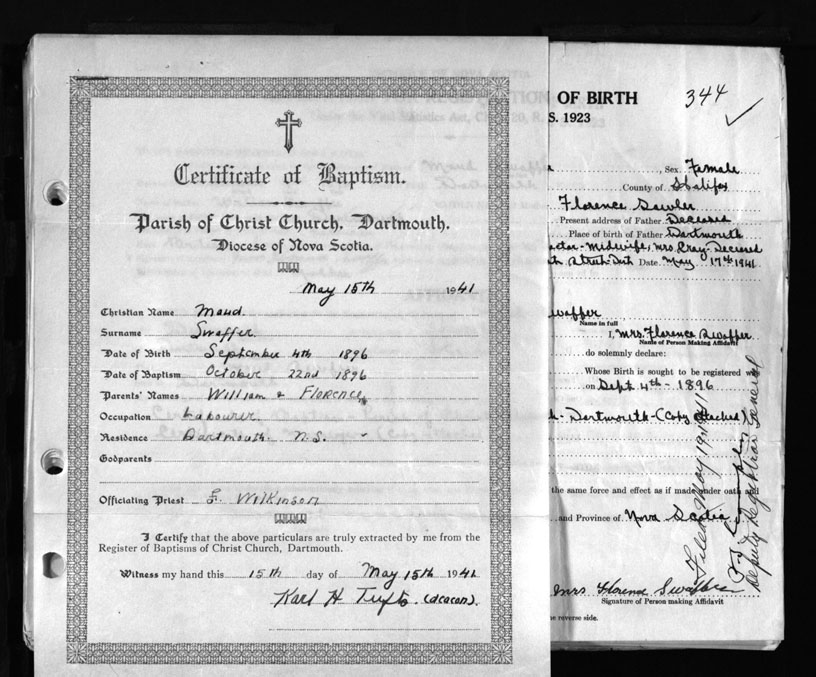 Certificate of Baptism.
Parish of Christ Church, Dartmouth.
Diocese of Nova Scotia.
May 15th 1941
Christian Name Maud.
Surname Swaffer.
Date of Birth September 4th 1896
Date of Baptism October 22nd 1896
Parents' Names William & Florence
Occupation Labourer.
Residence Dartmouth N.S.
Godparents
Officiating Priest F. Wilkinson
I Certify that the above particulars are truly extracted by me from the
Register of Baptisms of Christ Church, Dartmouth.
Witness my hand this 15th day of May 15th 1941
Karl H Tufts. (deacon).
OF BIRTH 344
S. 1923
, Sex Female
County of Halifax
Florence Sawler
Present address of Father Deceased
Place of birth of Father Dartmouth
Midwife, Mrs. Gray Deceased
Date May 17th 1941
Name in full
I, Mrs. Florence Swaffer
Name of Person Making Affidavit
do solemnly declare:
Whose Birth is sought to be registered w
on Sept 4th - 1896
Dartmouth - (Copy attached)
the same force and effect as if made under oath and
and Province of Nova Scotia
Mrs Florence Swaffer
Signature of Person making Affidavit
e reverse side.
Filed May 19, 1941
Deputy Registrar General